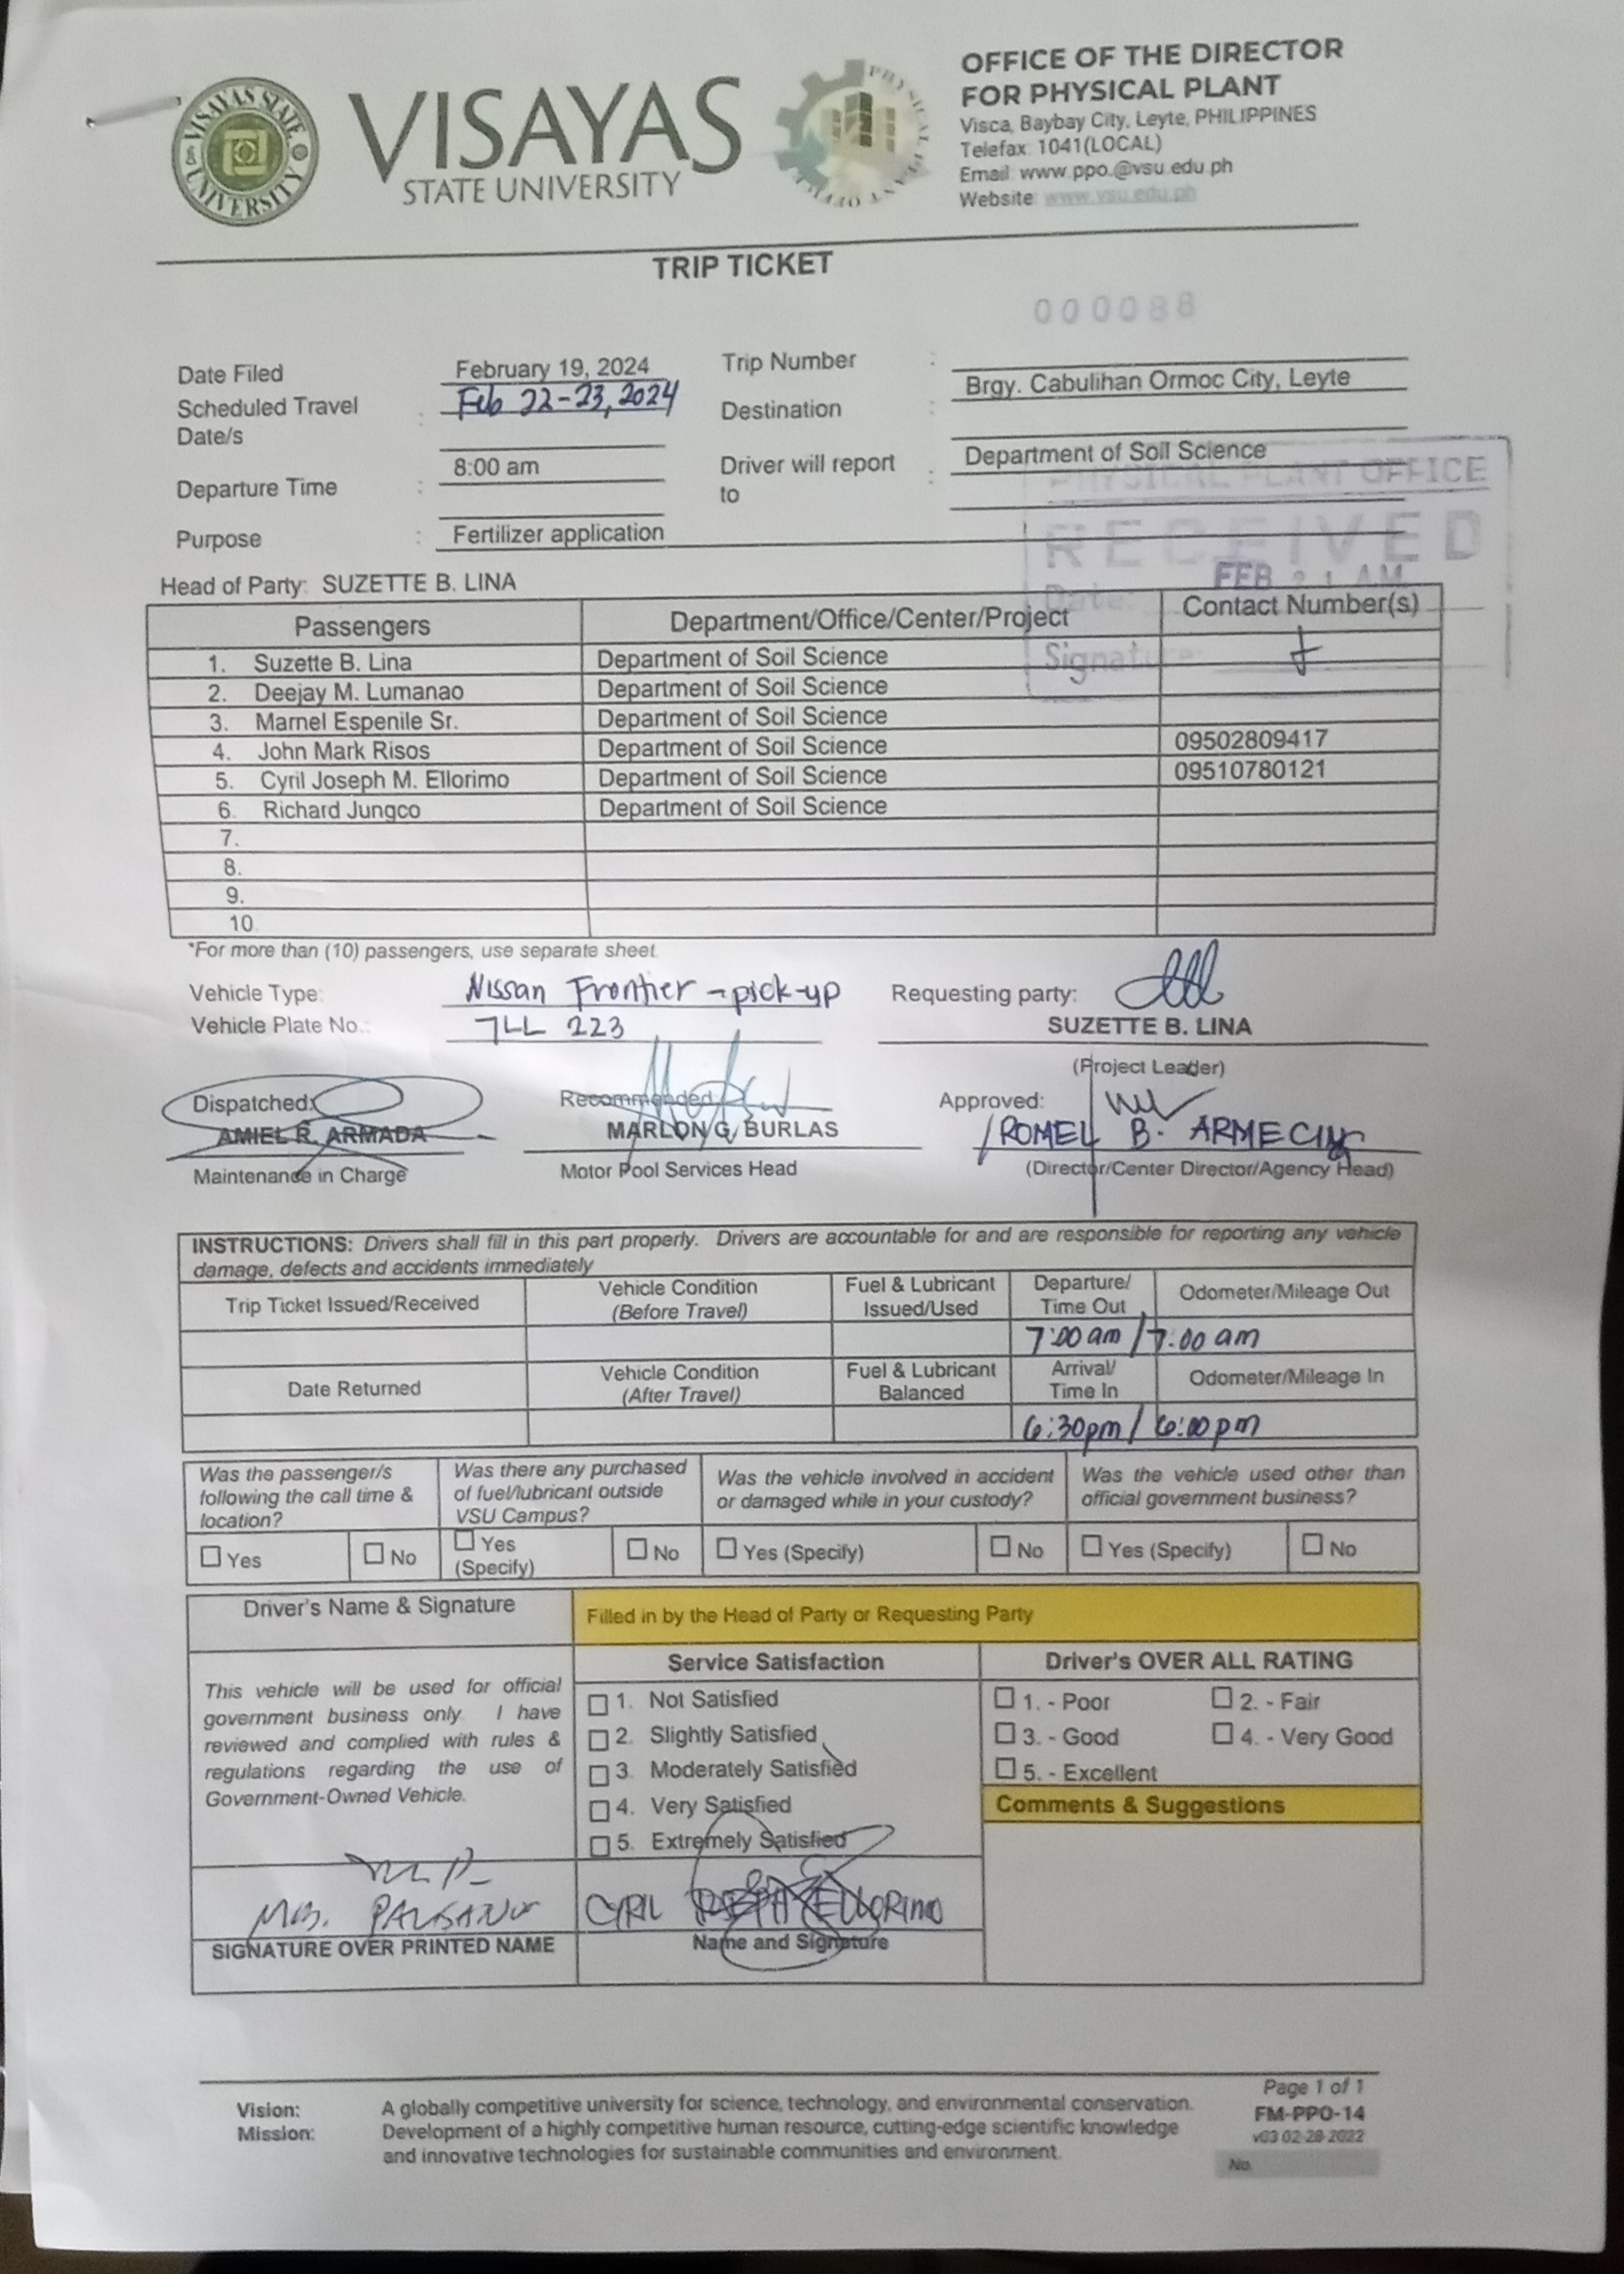 VISAYAS STATE UNIVERSITY
VISAYAS
STATE UNIVERSITY
OFFICE OF THE DIRECTOR
FOR PHYSICAL PLANT
Visca, Baybay City, Leyte, PHILIPPINES
Telefax: 1041(LOCAL)
Email: www.ppo.@vsu.edu.ph
Website: www.vsu.edu.ph
TRIP TICKET
000088
Date Filed February 19, 2024 Trip Number :
Scheduled Travel Date/s : Feb 22-23, 2024 Destination : Brgy. Cabulihan Ormoc City, Leyte
Departure Time : 8:00 am Driver will report to : Department of Soil Science
Purpose : Fertilizer application
PHYSICAL PLANT OFFICE
RECEIVED
Date: FEB 21 AM
Signature:
Head of Party: SUZETTE B. LINA
Passengers Department/Office/Center/Project Contact Number(s)
1. Suzette B. Lina Department of Soil Science
2. Deejay M. Lumanao Department of Soil Science
3. Marnel Espenile Sr. Department of Soil Science
4. John Mark Risos Department of Soil Science 09502809417
5. Cyril Joseph M. Ellorimo Department of Soil Science 09510780121
6. Richard Jungco Department of Soil Science
7.
8.
9.
10
*For more than (10) passengers, use separate sheet
Vehicle Type: Nissan Frontier - pick-up Requesting party:
Vehicle Plate No.: 7LL 223 SUZETTE B. LINA
(Project Leader)
Dispatched: Recommended Approved:
AMIEL R. ARMADA MARLON G. BURLAS ROMEL B. ARMECIN
Maintenance in Charge Motor Pool Services Head (Director/Center Director/Agency Head)
INSTRUCTIONS: Drivers shall fill in this part properly. Drivers are accountable for and are responsible for reporting any vehicle
damage, defects and accidents immediately
Trip Ticket Issued/Received Vehicle Condition (Before Travel) Fuel & Lubricant Issued/Used Departure/ Time Out Odometer/Mileage Out
7:00 am / 7:00 am
Date Returned Vehicle Condition (After Travel) Fuel & Lubricant Balanced Arrival/ Time In Odometer/Mileage In
6:30pm / 6:00pm
Was the passenger/s following the call time & location? Was there any purchased of fuel/lubricant outside VSU Campus? Was the vehicle involved in accident or damaged while in your custody? Was the vehicle used other than official government business?
Yes No Yes (Specify) No Yes (Specify) No Yes (Specify) No
Driver's Name & Signature Filled in by the Head of Party or Requesting Party
Service Satisfaction Driver's OVER ALL RATING
This vehicle will be used for official
government business only. I have
reviewed and complied with rules &
regulations regarding the use of
Government-Owned Vehicle.
1. Not Satisfied
2. Slightly Satisfied
3. Moderately Satisfied
4. Very Satisfied
5. Extremely Satisfied
1. - Poor 2. - Fair
3. - Good 4. - Very Good
5. - Excellent
Comments & Suggestions
CYRIL JOSEPH ELLORIMO
SIGNATURE OVER PRINTED NAME Name and Signature
Vision: A globally competitive university for science, technology, and environmental conservation.
Mission: Development of a highly competitive human resource, cutting-edge scientific knowledge
and innovative technologies for sustainable communities and environment.
Page 1 of 1
FM-PPO-14
v03 02-28-2022
No.